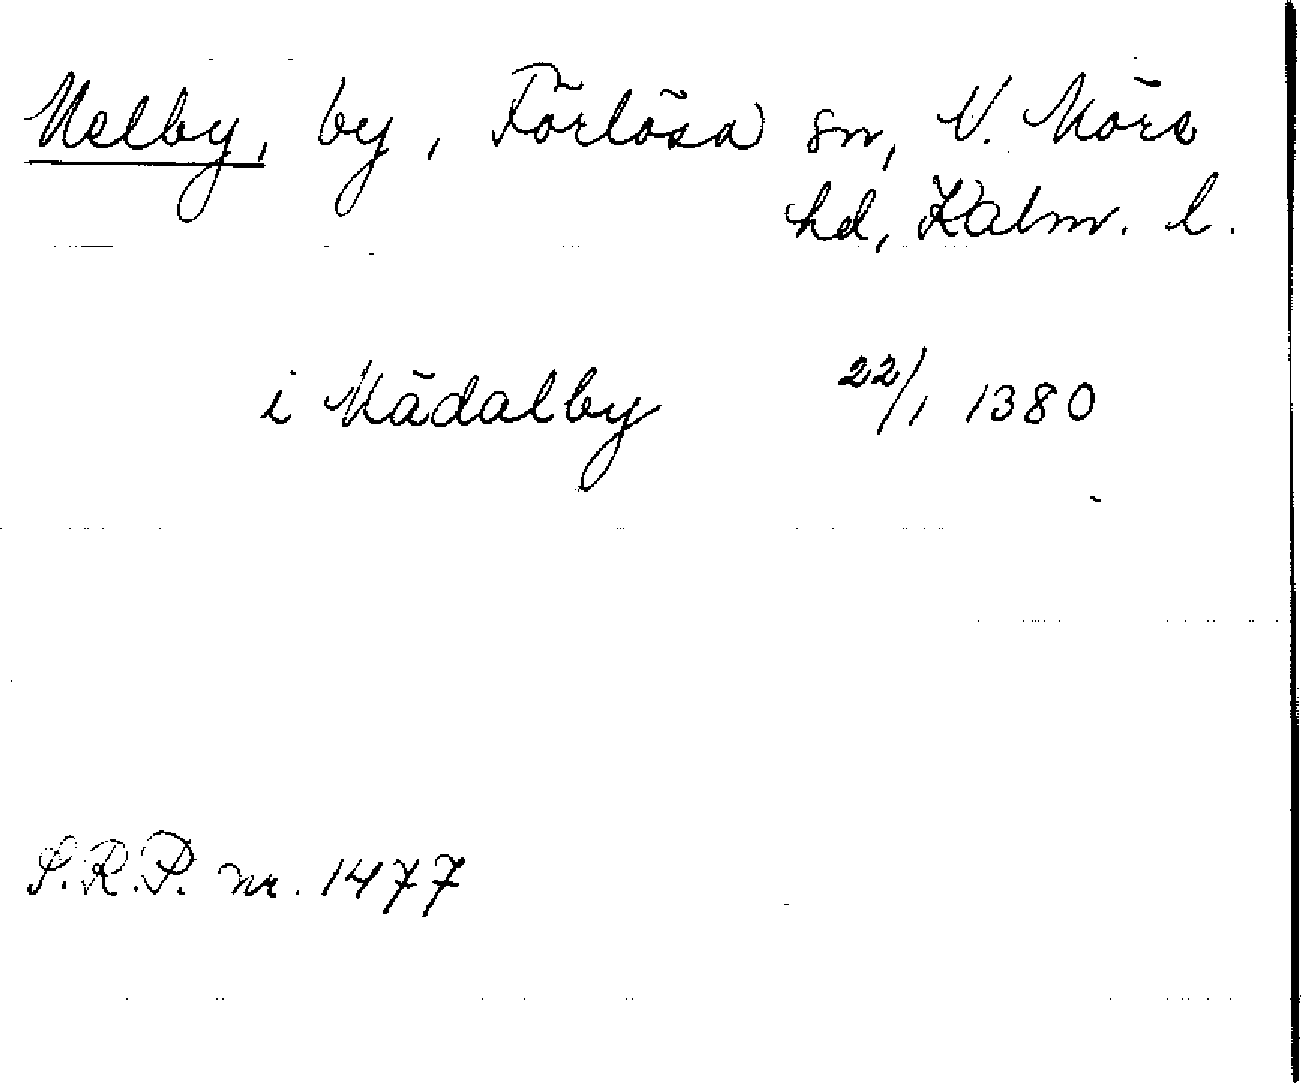 Melby, by, Förlösa sn, N. Möre
hd, Kalm. l.
i Mädalby 22/1 1380
S.R.P. nr. 1477